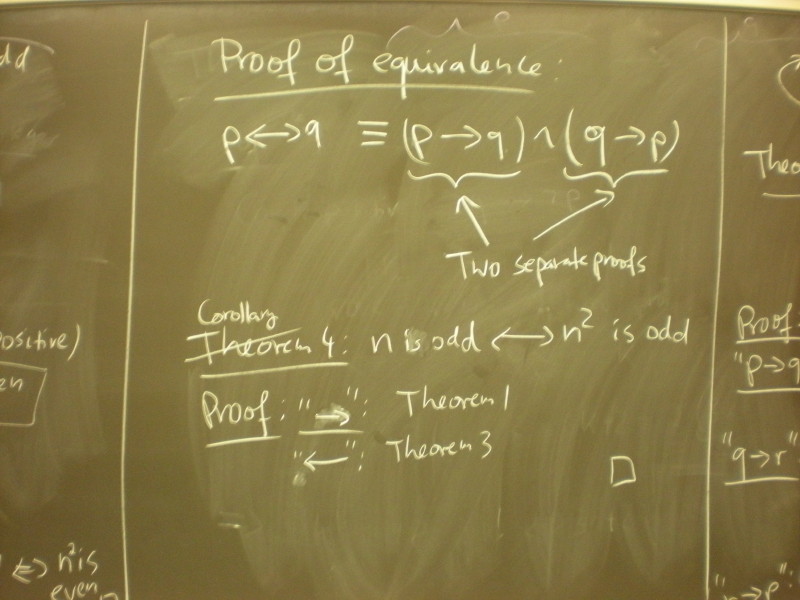 dd
ositive)
en
⟺ n² is
even
Proof of equivalence:
p ↔ q ≡ (p → q) ∧ (q → p)
Two separate proofs
Corollary
Theorem 4: n is odd ⟷ n² is odd
Proof: "→": Theorem 1
"←": Theorem 3
□
Theo
Proof
"p→q
"q→r"
"r→p":